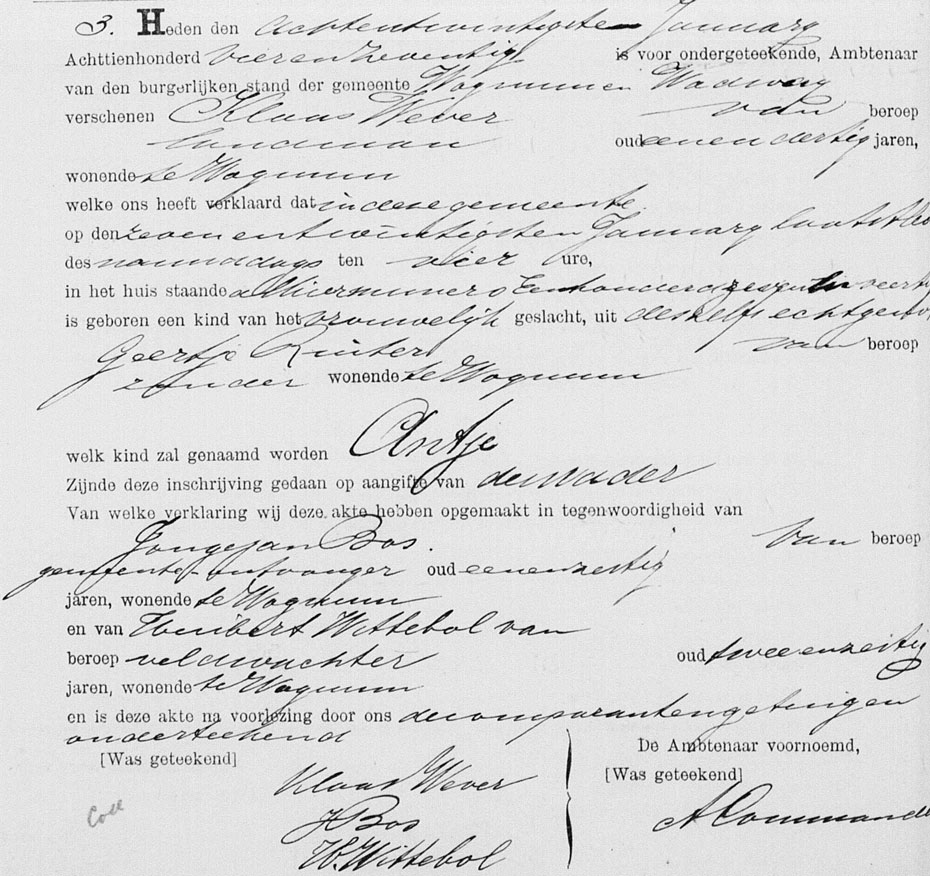 3. Heden den achtentwintigsten January
Achttienhonderd vierenzeventig is voor ondergeteekende, Ambtenaar
van den burgerlijken stand der gemeente Wognum en Wadway
verschenen Klaas Wever van beroep
landman oud eenendertig jaren,
wonende te Wognum
welke ons heeft verklaard dat in deze gemeente
op den zevenentwintigsten January laatstle
des namiddags ten vier ure,
in het huis staande alhier numero Eenhonderd zesen veert
is geboren een kind van het vrouwelijk geslacht, uit deszelfs echtgeno
Geertje Ruiter van beroep
zonder wonende te Wognum
welk kind zal genaamd worden Antje
Zijnde deze inschrijving gedaan op aangifte van den vader
Van welke verklaring wij deze akte hebben opgemaakt in tegenwoordigheid van
Jongejan Bos. van beroep
gemeente-ontvanger oud eenenzestig
jaren, wonende te Wognum
en van Wittebol van
beroep veldwachter oud tweeenzestig
jaren, wonende te Wognum
en is deze akte na voorlezing door ons de comparant en getuigen
onderteekend
[Was geteekend] De Ambtenaar voornoemd,
Klaas Wever [Was geteekend]
J Bos A Commande
W. Wittebol
Coll